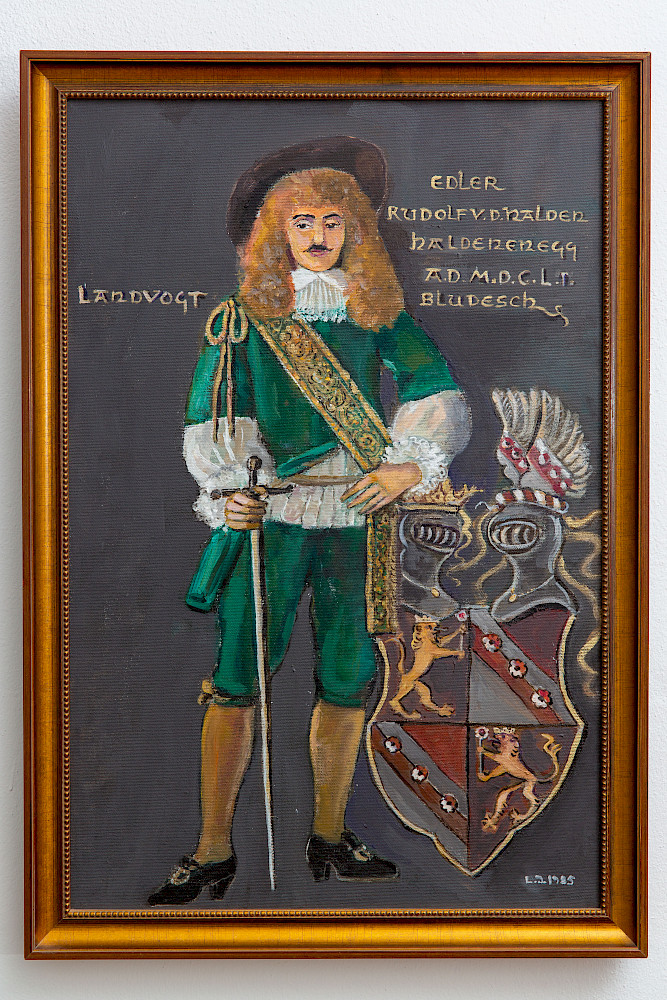 LANDVOGT
EDLER
RUDOLF V. D. HALDEN
HALDENENEGG
A.D. M.D.C.L.
BLUDESCH
L.J. 1985